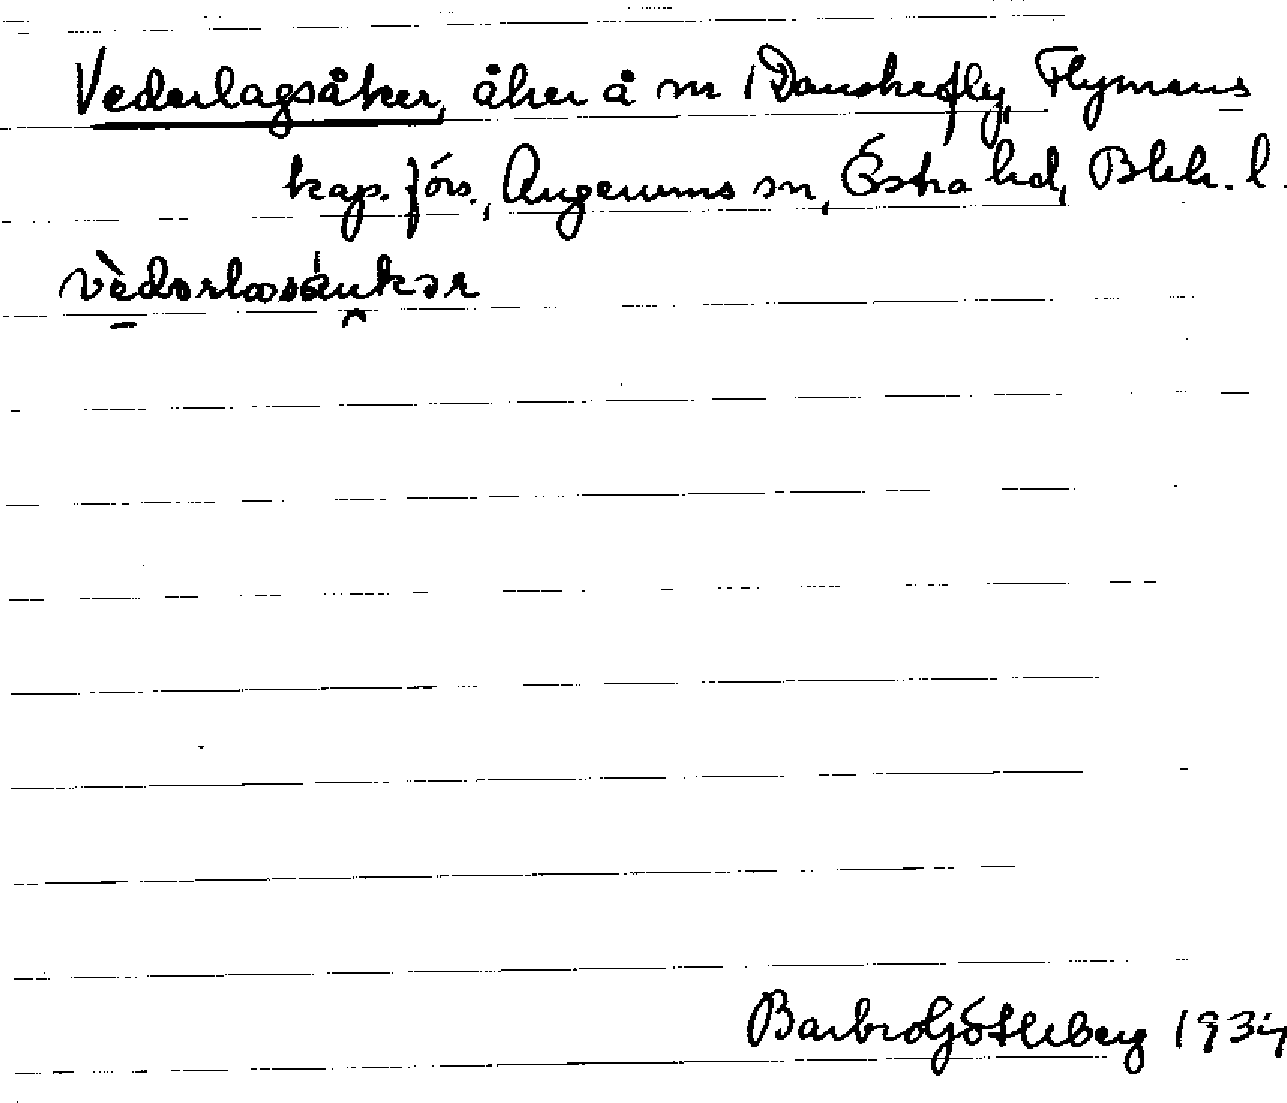 Vederlagsåker, åker å nr 1 Danskefly, Flymens
kap. förs., Augerums sn, Östra hd, Blek. l.
Barbro Götleberg 1934